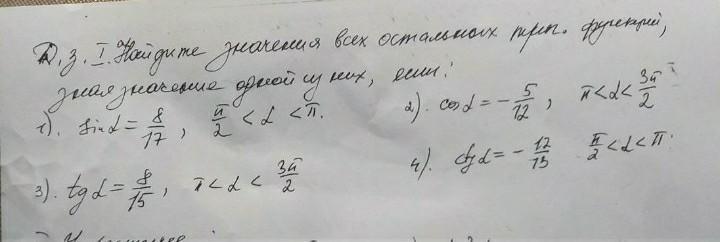 Д. з. I. Найдите значения всех остальных триг. функций,
зная значение одной из них, если:
1). sin α = 8/17, π/2 < α < π.
2). cos α = - 5/12, π < α < 3π/2
3). tg α = 8/15, π < α < 3π/2
4). ctg α = - 12/15 π/2 < α < π.